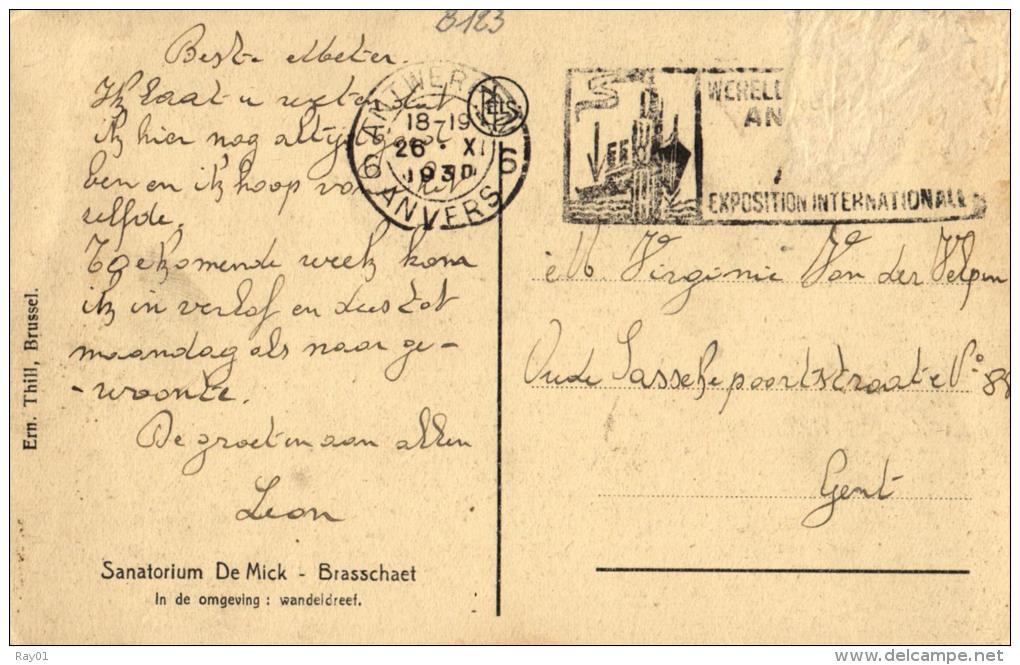 B123
Beste Meter.
Ik laat u weten dat
ik hier nog altijd goed
ben en ik hoop van het
zelfde.
Toekomende week kom
ik in verlof en dus tot
maandag als naar ge-
-woonte.
De groeten aan allen
Leon
Sanatorium De Mick - Brasschaet
In de omgeving : wandeldreef.
Ern. Thill, Brussel.
NELS
ANTWERPEN
18-19
26 · XI
1930
6 6
ANVERS
WERELD
AN
EXPOSITION INTERNATIONALE
M Virginie Van der Velpen
Oude Sasschepoortstraat N° 88
Gent
Ray01
www.delcampe.net